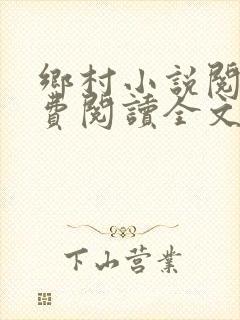 鄉村小説閱
費閱讀全文
下山营業